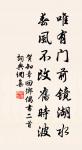 唯有门前镜湖水
春风不改旧时波
贺知章回乡偶书二首
词典网集